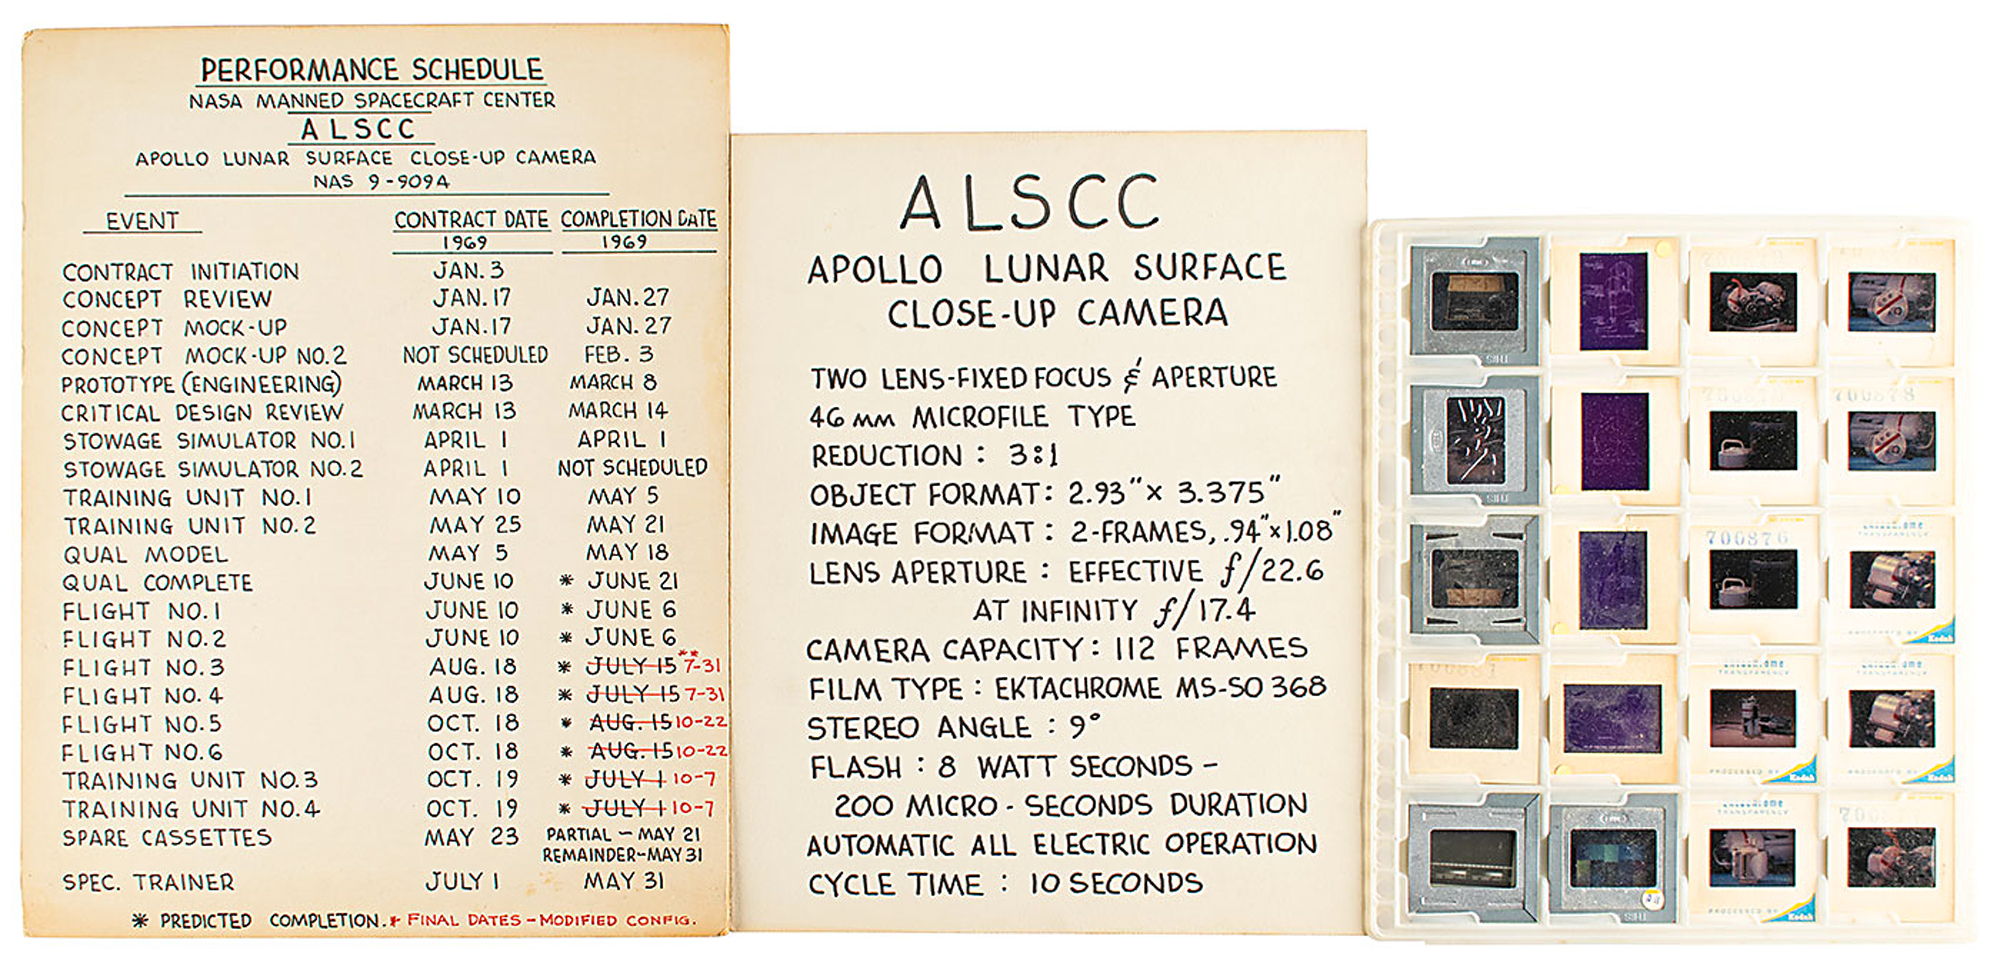 PERFORMANCE SCHEDULE
NASA MANNED SPACECRAFT CENTER
ALSCC
APOLLO LUNAR SURFACE CLOSE-UP CAMERA
NAS 9-9094
EVENT CONTRACT DATE COMPLETION DATE
1969 1969
CONTRACT INITIATION JAN. 3
CONCEPT REVIEW JAN. 17 JAN. 27
CONCEPT MOCK-UP JAN. 17 JAN. 27
CONCEPT MOCK-UP NO. 2 NOT SCHEDULED FEB. 3
PROTOTYPE (ENGINEERING) MARCH 13 MARCH 8
CRITICAL DESIGN REVIEW MARCH 13 MARCH 14
STOWAGE SIMULATOR NO. 1 APRIL 1 APRIL 1
STOWAGE SIMULATOR NO. 2 APRIL 1 NOT SCHEDULED
TRAINING UNIT NO. 1 MAY 10 MAY 5
TRAINING UNIT NO. 2 MAY 25 MAY 21
QUAL MODEL MAY 5 MAY 18
QUAL COMPLETE JUNE 10 * JUNE 21
FLIGHT NO. 1 JUNE 10 * JUNE 6
FLIGHT NO. 2 JUNE 10 * JUNE 6
FLIGHT NO. 3 AUG. 18 * JULY 15 ** 7-31
FLIGHT NO. 4 AUG. 18 * JULY 15 7-31
FLIGHT NO. 5 OCT. 18 * AUG. 15 10-22
FLIGHT NO. 6 OCT. 18 * AUG. 15 10-22
TRAINING UNIT NO. 3 OCT. 19 * JULY 1 10-7
TRAINING UNIT NO. 4 OCT. 19 * JULY 1 10-7
SPARE CASSETTES MAY 23 PARTIAL - MAY 21
REMAINDER-MAY 31
SPEC. TRAINER JULY 1 MAY 31
* PREDICTED COMPLETION. * FINAL DATES - MODIFIED CONFIG.
ALSCC
APOLLO LUNAR SURFACE
CLOSE-UP CAMERA
TWO LENS-FIXED FOCUS & APERTURE
46 mm MICROFILE TYPE
REDUCTION : 3:1
OBJECT FORMAT: 2.93" x 3.375"
IMAGE FORMAT : 2-FRAMES, .94" x 1.08"
LENS APERTURE : EFFECTIVE f/22.6
AT INFINITY f/17.4
CAMERA CAPACITY : 112 FRAMES
FILM TYPE : EKTACHROME MS-SO 368
STEREO ANGLE : 9°
FLASH : 8 WATT SECONDS -
200 MICRO-SECONDS DURATION
AUTOMATIC ALL ELECTRIC OPERATION
CYCLE TIME : 10 SECONDS
700878
700876
TRANSPARENCY
Kodak
TRANSPARENCY
TRANSPARENCY
PROCESSED BY
Kodak
PROCESSED BY
Kodak
TRANSPARENCY
PROCESSED BY
Kodak